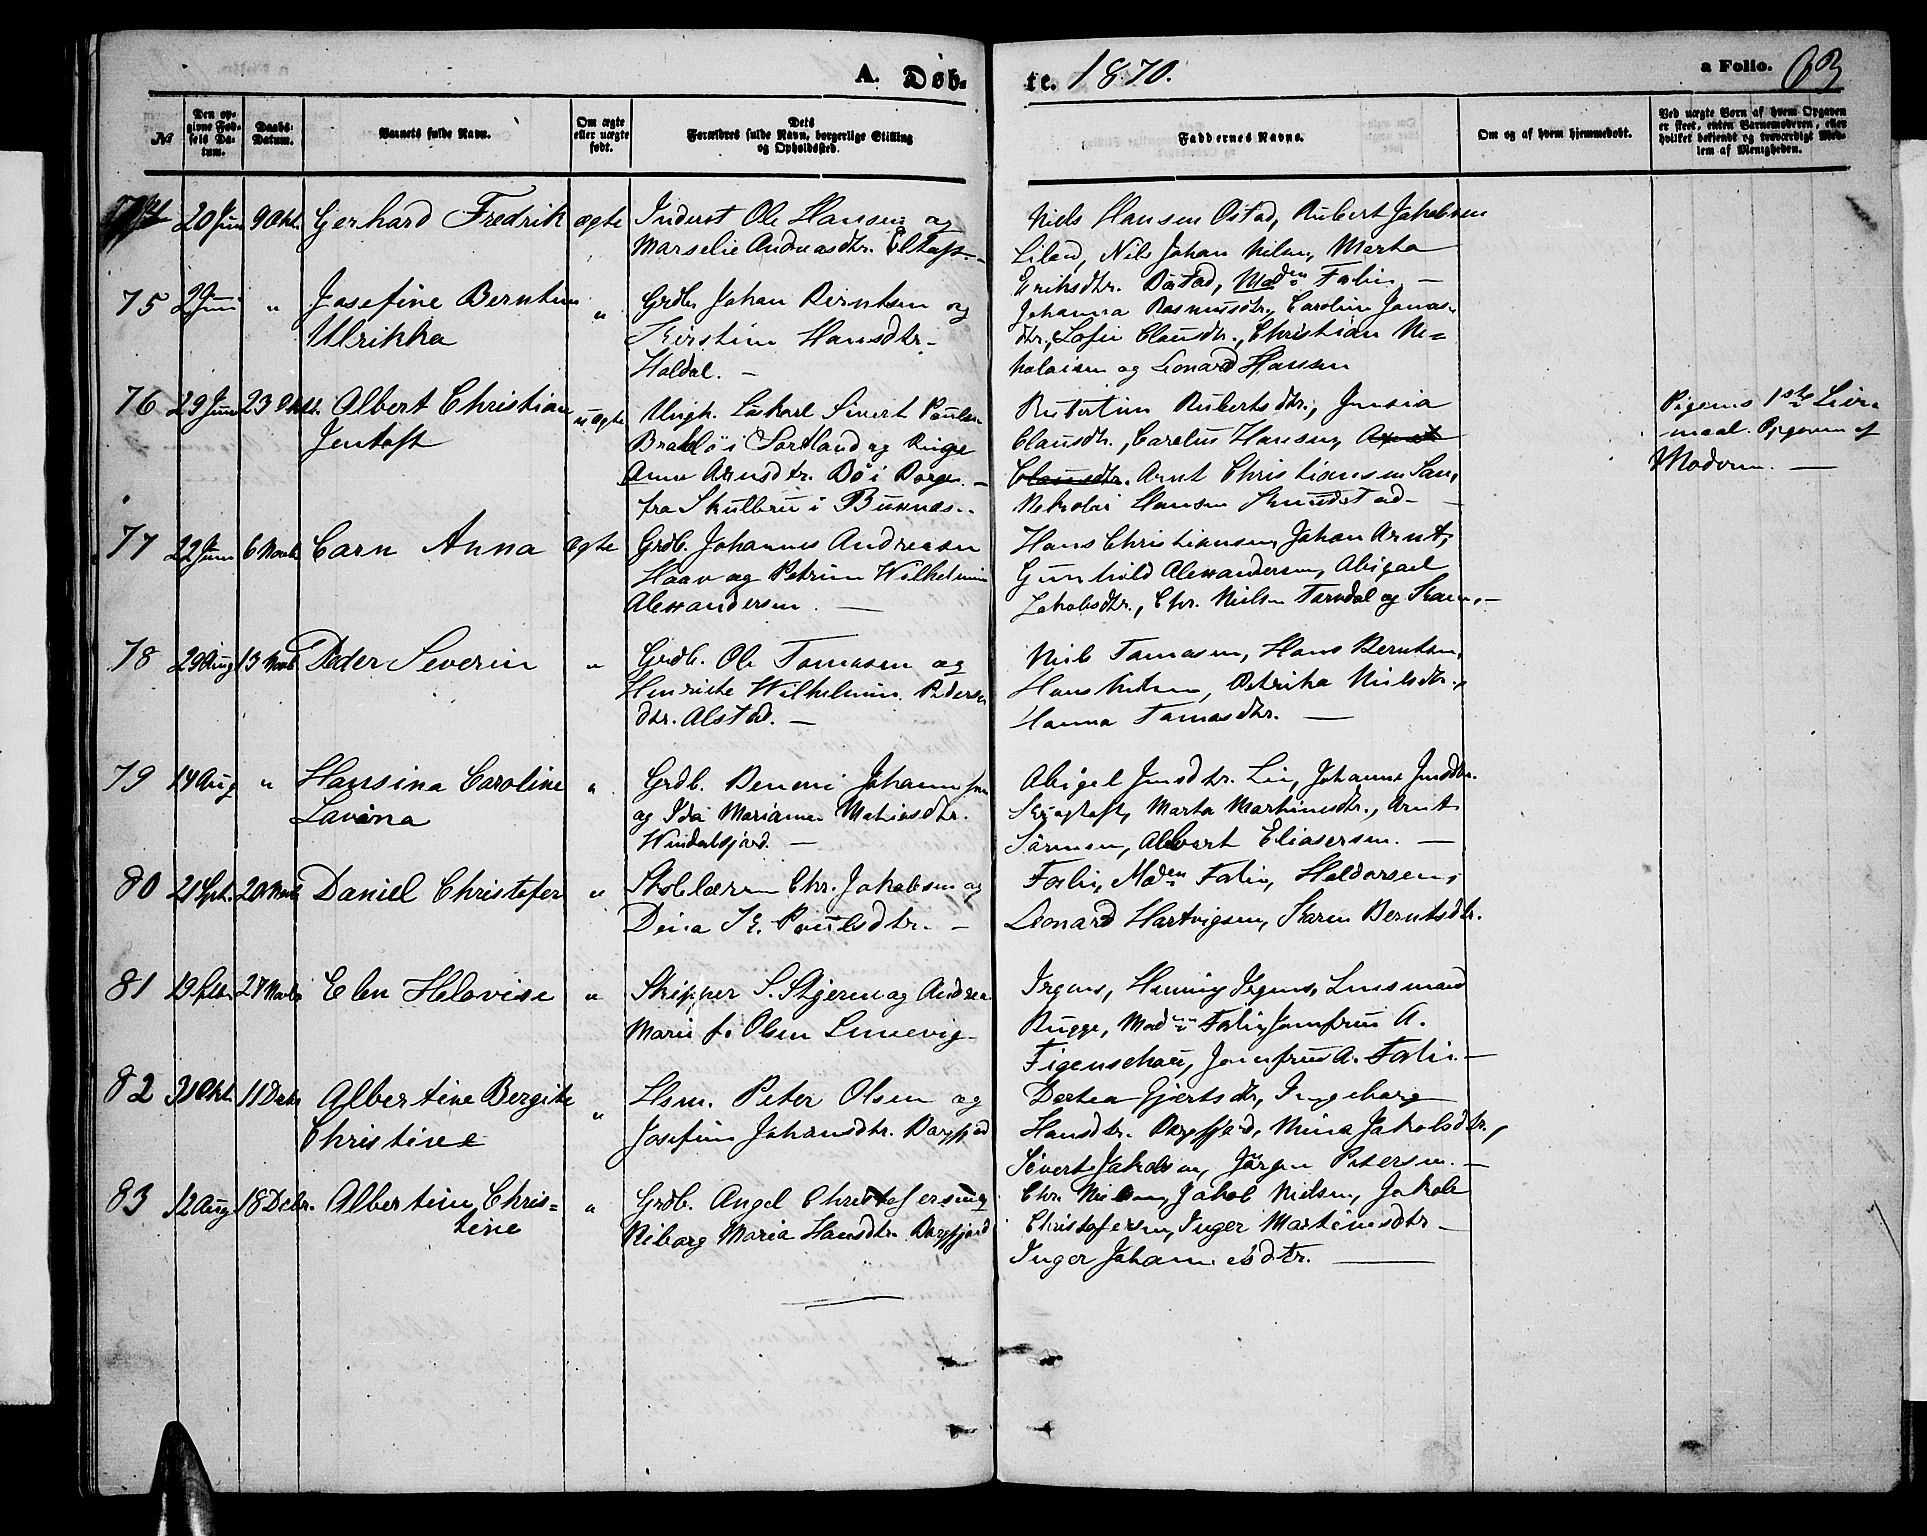 A. Døb-
te. 1870.
a Folio. 63
№
Den op-
givne Fød-
sels Da-
tum.
Daabs-
Datum.
Barnets fulde Navn.
Om ægte
eller uægte
født.
Dets
Forældres fulde Navn, borgerlige Stilling
og Opholdssted.
Faddernes Navne.
Om og af hvem hjemmedøbt.
Ved uægte Børn af hvem Opgaven
er skeet, enten Barnemoderen, eller
hvilket bekjendt og troværdigt Med-
lem af Menigheden.
74 20 Juni 9 Okt. Gerhard Fredrik ægte Inderst Ole Hansen og
Marselie Andreasdtr. Eltoft. -
Niels Hansen Østad, Rubert Jakobsen
Liland, Nils Johan Nilsen, Marta
Eriksdtr. Bøstad, Mad.n Forlie -
75 2 Juni " Josefine Berntine
Ulrikka
" Grdb. Johan Berntsen og
Kirstine Hansdtr.
Holdal. -
Johanna Rasmusdtr., Caroline Jonas-
dtr., Sofie Clausdtr., Christian Ni=
kolaisen og Leonard Hansen
76 29 Juni 23 Okt. Albert Christian
Jentoft
uægte Ungk. Løskarl Sivert Paulsen
Brokløs i Sortland og Pige
Anne Arnsdtr. Bø i Borge. -
fra Skulbru i Buknæs. -
Rubertine Rubertsdtr., Jensia
Clausdtr., Carelus Hansen,
Clausdtr. Arnt Christiansen San,
Nekolai Hansen Knudstad -
Pigens 1ste Leier-
maal. Opgaven af
Moderen. -
77 22 Juni 6 Novb. Carn Anna ægte Grdb. Johannes Andreasen
Haav og Petrine Wilhelmine
Alexandersen. -
Hans Christiansen, Johan Arnt,
Gunhild Alexandersen, Abigael
Jakobsdtr., Chr. Nielsen Farsdal og Kone. -
78 29 Aug 13 Novb Peder Severin " Grdb. Ole Tomasen og
Henrikke Wilhelmine Peders
dtr. Alstad. -
Niels Tomasen, Hans Berntsen,
Hans Nilsen, Petrika Nielsdtr.,
Hanna Tomasdtr. -
79 14 Aug " Hansina Caroline
Lavina
" Grdb. Benoni Johannesen
og Ida Marianne Mathiasdtr.
Windalsfjord. -
Abigel Jensdtr. Lie, Johanne Jensdtr.
Skogtoft, Marta Martinusdtr., Arnt
Sørensen, Albert Eliasersen. -
80 21 Sept. 20 Novb Daniel Christofer " Skolelærer Chr. Jakobsen og
Dina K. Poulsdtr. -
Forlie, Mad.en Forlie, Haldorsen,
Leonard Hartvigsen, Karen Berntsdtr.
81 19 27 Novb Elen Helovise " Skipper S. Stjeren og Andrea
Marie f. Olsen Leinevig -
Irgens, Henning Irgens, Lensmand
Bugge, Mad.n Forlie, Jomfrue A.
Figenschau, Jomfrue A. Forlie. -
82 31 Okt. 11 Decbr Albertine Bergite
Christine
" Hsm. Peter Olsen og
Josefine Johansdtr. Borgfjord
Dortea Gjertsdtr, Ingeborg
Hansdtr. Borgfjord, Mina Jakobsdtr.,
Sivert Jakobsen, Jørgen Petersen. -
83 12 Aug 18 Decbr. Albertine Chris=
tine
" Grdb. Angel Christofersen og
Riborg Maria Hansdtr. Borgfjord
Chr. Nielsen, Jakob Nielsen, Jakob
Christofersen, Inger Martinusdtr -
Inger Johannesdtr. -